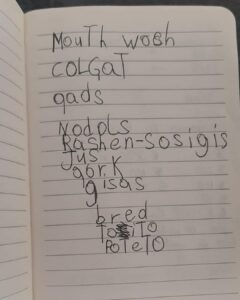 MouTh wosh
COLGaT
qads
Nodpls
Rashen-sosigis
Jus
gork
gisas
bred
ToSiTo
PoTeTO